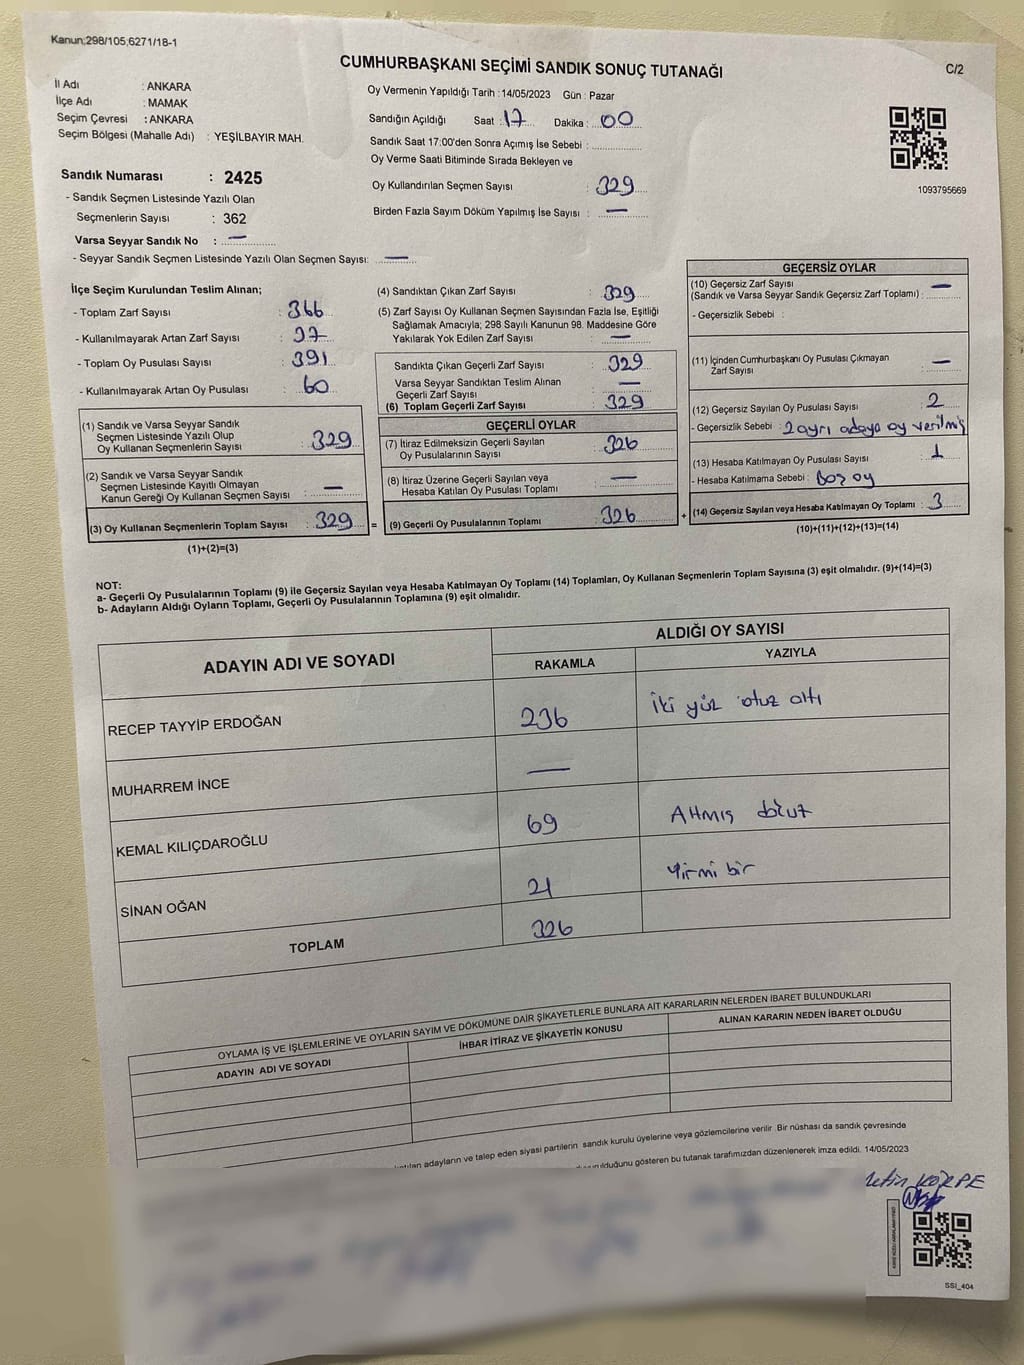 Kanun;298/105;6271/18-1
CUMHURBAŞKANI SEÇİMİ SANDIK SONUÇ TUTANAĞI
C/2
İl Adı : ANKARA
İlçe Adı : MAMAK
Seçim Çevresi : ANKARA
Seçim Bölgesi (Mahalle Adı) : YEŞİLBAYIR MAH.
Oy Vermenin Yapıldığı Tarih : 14/05/2023 Gün : Pazar
Sandığın Açıldığı Saat : 17 Dakika : 00
Sandık Saat 17:00'den Sonra Açımış İse Sebebi :
Oy Verme Saati Bitiminde Sırada Bekleyen ve
Oy Kullandırılan Seçmen Sayısı : 329
Birden Fazla Sayım Döküm Yapılmış İse Sayısı : —
1093795669
Sandık Numarası : 2425
- Sandık Seçmen Listesinde Yazılı Olan
Seçmenlerin Sayısı : 362
Varsa Seyyar Sandık No : —
- Seyyar Sandık Seçmen Listesinde Yazılı Olan Seçmen Sayısı: —
İlçe Seçim Kurulundan Teslim Alınan;
- Toplam Zarf Sayısı : 366
- Kullanılmayarak Artan Zarf Sayısı : 37
- Toplam Oy Pusulası Sayısı : 391
- Kullanılmayarak Artan Oy Pusulası : 60
(1) Sandık ve Varsa Seyyar Sandık
Seçmen Listesinde Yazılı Olup
Oy Kullanan Seçmenlerin Sayısı : 329
(2) Sandık ve Varsa Seyyar Sandık
Seçmen Listesinde Kayıtlı Olmayan
Kanun Gereği Oy Kullanan Seçmen Sayısı : —
(3) Oy Kullanan Seçmenlerin Toplam Sayısı : 329 =
(1)+(2)=(3)
(4) Sandıktan Çıkan Zarf Sayısı : 329
(5) Zarf Sayısı Oy Kullanan Seçmen Sayısından Fazla İse, Eşitliği
Sağlamak Amacıyla; 298 Sayılı Kanunun 98. Maddesine Göre
Yakılarak Yok Edilen Zarf Sayısı : —
Sandıkta Çıkan Geçerli Zarf Sayısı : 329
Varsa Seyyar Sandıktan Teslim Alınan
Geçerli Zarf Sayısı : —
(6) Toplam Geçerli Zarf Sayısı : 329
GEÇERLİ OYLAR
(7) İtiraz Edilmeksizin Geçerli Sayılan
Oy Pusulalarının Sayısı : 326
(8) İtiraz Üzerine Geçerli Sayılan veya
Hesaba Katılan Oy Pusulası Toplamı : —
(9) Geçerli Oy Pusulalarının Toplamı : 326 +
GEÇERSİZ OYLAR
(10) Geçersiz Zarf Sayısı
(Sandık ve Varsa Seyyar Sandık Geçersiz Zarf Toplamı) : —
- Geçersizlik Sebebi :
(11) İçinden Cumhurbaşkanı Oy Pusulası Çıkmayan
Zarf Sayısı : —
(12) Geçersiz Sayılan Oy Pusulası Sayısı : 2
- Geçersizlik Sebebi : 2 ayrı adaya oy verilmiş
(13) Hesaba Katılmayan Oy Pusulası Sayısı : 1
- Hesaba Katılmama Sebebi : Boş oy
(14) Geçersiz Sayılan veya Hesaba Katılmayan Oy Toplamı : 3
(10)+(11)+(12)+(13)=(14)
NOT:
a- Geçerli Oy Pusulalarının Toplamı (9) ile Geçersiz Sayılan veya Hesaba Katılmayan Oy Toplamı (14) Toplamları, Oy Kullanan Seçmenlerin Toplam Sayısına (3) eşit olmalıdır. (9)+(14)=(3)
b- Adayların Aldığı Oyların Toplamı, Geçerli Oy Pusulalarının Toplamına (9) eşit olmalıdır.
ADAYIN ADI VE SOYADI
ALDIĞI OY SAYISI
RAKAMLA YAZIYLA
RECEP TAYYİP ERDOĞAN 236 İki yüz otuz altı
MUHARREM İNCE —
KEMAL KILIÇDAROĞLU 69 Altmış dokuz
SİNAN OĞAN 21 Yirmi bir
TOPLAM 326
OYLAMA İŞ VE İŞLEMLERİNE VE OYLARIN SAYIM VE DÖKÜMÜNE DAİR ŞİKAYETLERLE BUNLARA AİT KARARLARIN NELERDEN İBARET BULUNDUKLARI
ADAYIN ADI VE SOYADI İHBAR İTİRAZ VE ŞİKAYETİN KONUSU ALINAN KARARIN NEDEN İBARET OLDUĞU
adayların ve talep eden siyasi partilerin sandık kurulu üyelerine veya gözlemcilerine verilir. Bir nüshası da sandık çevresinde
gösteren bu tutanak tarafımızdan düzenlenerek imza edildi. 14/05/2023
KÖRPE
SSI_404